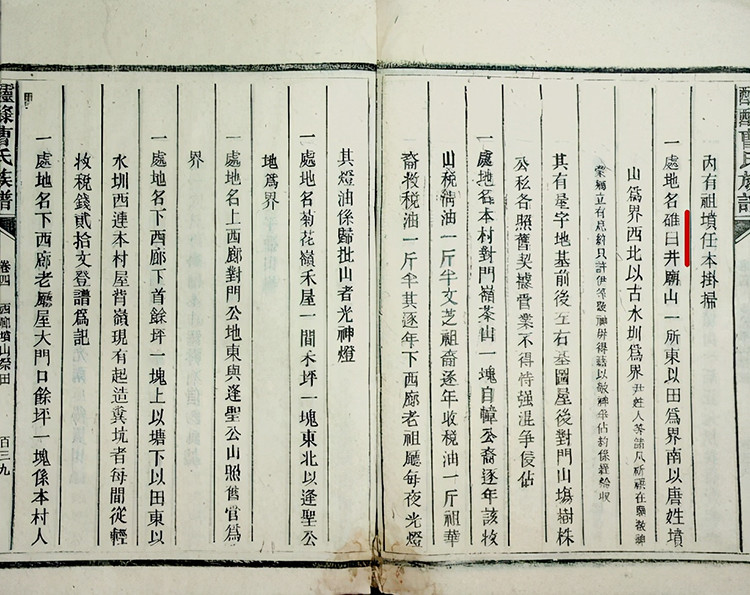 內有祖墳任本掛掃
一處地名碓臼井廟山一所東以田爲界南以唐姓墳
山爲界西北以古水圳爲界
其有屋宇地基前後左右墓圖屋後對門山塲樹株
公私各照舊契據管業不得恃强混爭侵佔
一處地名本村對門嶺茶山一塊自幛公裔逐年該收
山稅淸油一斤半文芝祖裔逐年收稅油一斤祖華
裔收稅油一斤半其逐年下西廊老祖廳每夜光燈
其燈油係歸批山者光神燈
一處地名菊花嶺禾屋一間禾坪一塊東北以逢聖公
地爲界
一處地名上西廊對門公地東與逢聖公山照舊管爲
界
一處地名下西廊下首餘坪一塊上以塘下以田東以
水圳西連本村屋背嶺現有起造糞坑者每間從輕
收稅錢貳拾文登譜爲記
一處地名下西廊老廳屋大門口餘坪一塊係本村人
曹氏族譜
卷四
西廊墳山祭田
百三九
曹氏族譜